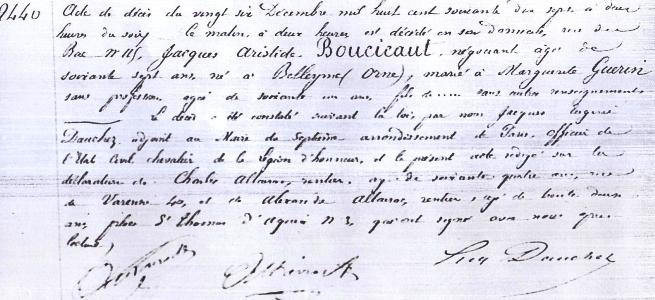 2440 Acte de décès du vingt six Décembre mil huit cent soixante dix sept, à deux
heures du soir, le matin, à deux heures est décédé en son domicile, rue du
Bac nº 115, Jacques Aristide Boucicaut négociant âgé de
soixante sept ans, né à Belleyme (Orne), marié à Marguerite Guerin
sans profession, agée de soixante un ans, fils de sans autres renseignements
Le décès a été constaté suivant la loi, par nous Jacques Eugène
Dauchez adjoint au Maire du Septième arrondissement de Paris. Officier de
l'Etat Civil, chevalier de la Légion d'honneur, et le présent acte rédigé sur la
déclaration de Charles rentier, agé de soixante quatre ans, rue
de Varenne 40, et de Alexandre rentier, agé de trente deux
ans, place St Thomas d'Aquin nº 3, qui ont signé avec nous après
lecture,
Dauchez